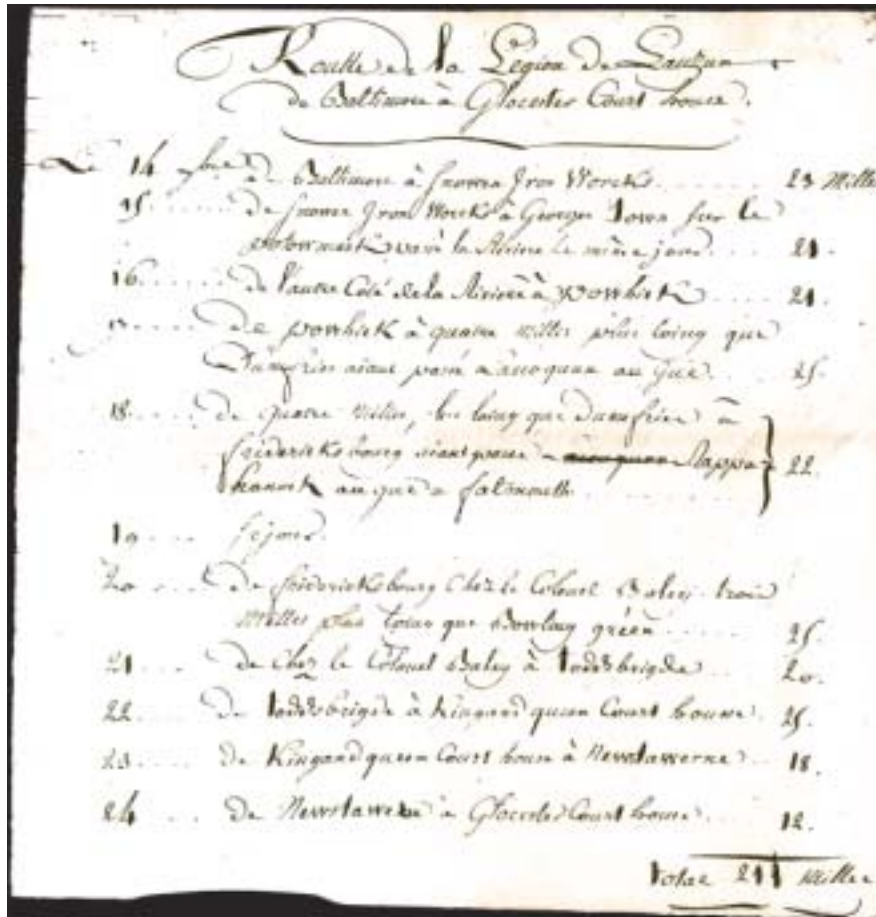 Routte de la Légion de Lauzun
de Baltimore à Glocester Court house.
Le 14 de Baltimore à Snowen Iron Worcks 23 Milles
15 de Snowen Iron Worcks à Georges Town sur le
la Riviere le même jour 21.
16 de l'autre Côté de la Riviere à powhick 21.
17 de powhick à quatre milles plus loing que
Dumfries aiant passé au gué 25.
18 de quatre milles, plus loing que dumfries à
friderichsbourg aiant passé Rappa
hanock au gué a falsmouth 22.
19 séjour.
20 de friderichsbourg chez le Colonel Baley trois
milles plus loing que Bowling gréen 25.
21 de chez le Colonel Baley à toddsbrigde 20.
22 de toddsbrigde à Kingandqueen Court house 25.
23 de Kingandqueen Court house à Newstawerne 18.
24 de Newstawerne à Glocester Court house 12.
Total 211 Milles